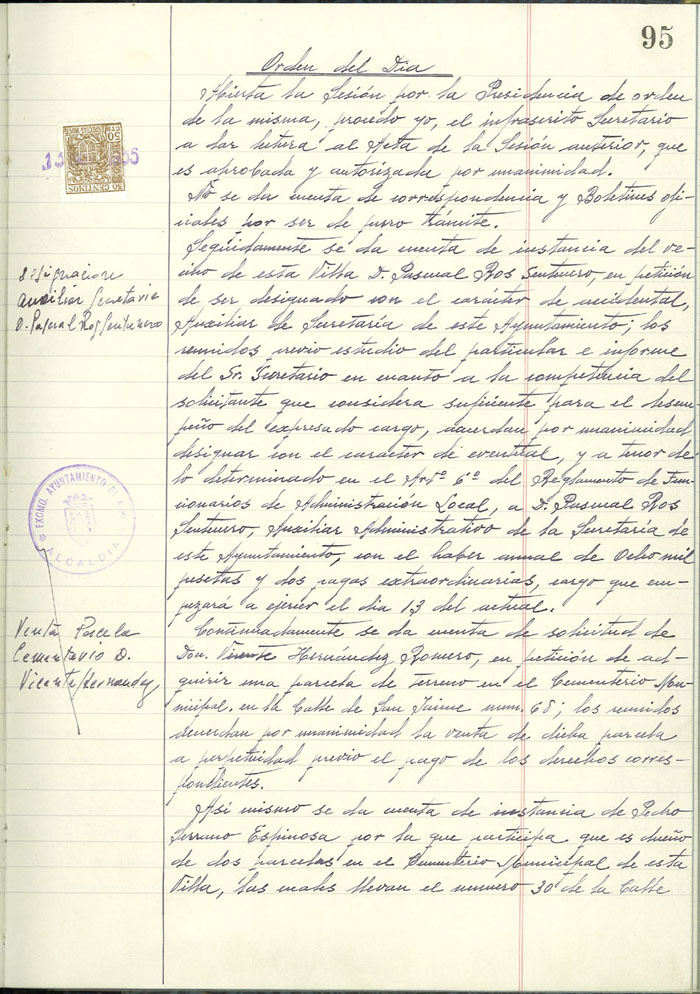 95
Orden del Día
Abierta la Sesión por la Presidencia de orden
de la misma, procedo yo, el infrascrito Secretario
a dar letura al Acta de la Sesión anterior, que
es aprobada y autorizada por unanimidad.
No se da cuenta de correspondencia y Boletines ofi-
ciales por ser de purro trámite.
Seguidamente se da cuenta de instancia del ve-
cino de esta Villa D. Pascual Ros Sentenero, en petición
de ser designado con el carácter de accidental,
Auxiliar de Secretaría de este Ayuntamiento; los
reunidos previo estudio del particular e informe
del Sr. Secretario en cuanto a la competencia del
solicitante que considera suficiente para el desem-
peño del expresado cargo, acuerdan por unanimidad
designar con el caracter de eventual, y a tenor de
lo determinado en el Artº 6º del Reglamento de Fun-
cionarios de Administración Local, a D. Pascual Ros
Sentenero, Auxiliar Administrativo de la Secretaría de
este Ayuntamiento, con el haber anual de Ocho mil
pesetas y dos pagas extraordinarias, cargo que em-
pezará a ejercer el dia 13 del actual.
Continuadamente se da cuenta de solicitud de
Don. Vicente Hernández Romero, en petición de ad-
quirir una parcela de terreno en el Cementerio Mu-
nicipal. en la Calle de San Jaime num. 68; los reunidos
acuerdan por unanimidad la venta de dicha parcela
a perpetuidad previo el pago de los derechos corres-
pondientes.
Asi mismo se da cuenta de instancia de Pedro
Serrano Espinosa por la que participa que es dueño
de dos parcelas en el Cementerio Municipal de esta
Villa, las cuales llevan el numero 30 de la Calle
50 CENTIMOS
designacion
auxiliar Secretaria
D. Pascual Ros Sentenero
EXCMO. AYUNTAMIENTO DE
ALCALDIA
Venta Parcela
Cementerio D.
Vicente Hernandez